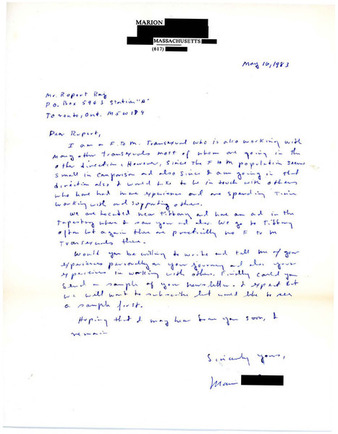 MARION
MASSACHUSETTS
(617)
May 10, 1983
Mr. Rupert Raj
P.O. Box 5963 Station "A"
Toronto, Ont. M5W 1P4
Dear Rupert,
I am a F to M. Transexual who is also working with
many other Transexuals most of whom are going in the
other direction. However, since the F to M population seems
small in comparison and also since I am going in that
direction also I would like to be in touch with others
who have had more experience and are spending time
working with and supporting others.
We are located near Tiffany and have an ad in the
Tapestry where I saw your ad also. We go to Tiffany
often but again there are practically no F to M
Transexuals there.
Would you be willing to write and tell me of your
experiences personally on your journey and also your
experiences in working with others. Finally could you
send a sample of your newsletter. I expect that
we will want to subscribe but would like to see
a sample first.
Hoping that I may hear from you soon, I
remain
Sincerely yours,